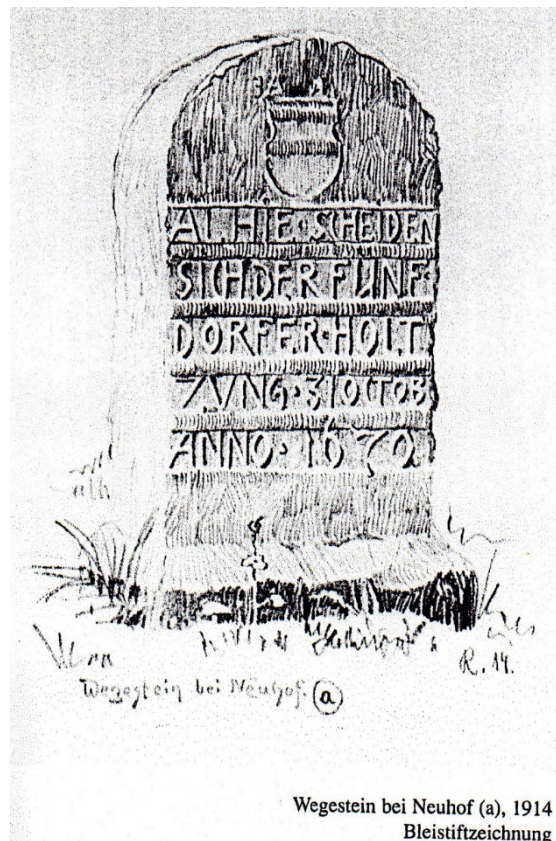 ALHIE·SCHEIDEN
SICH DER FUNF·
DORFER·HOLT
ZVNG·31OCTOB
ANNO·1670
R. 14.
Wegestein bei Neuhof. a
Wegestein bei Neuhof (a), 1914
Bleistiftzeichnung